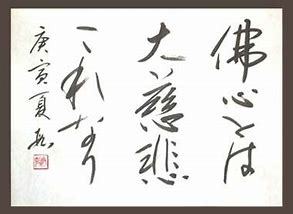 佛心とは
大慈悲
これなり
庚寅夏